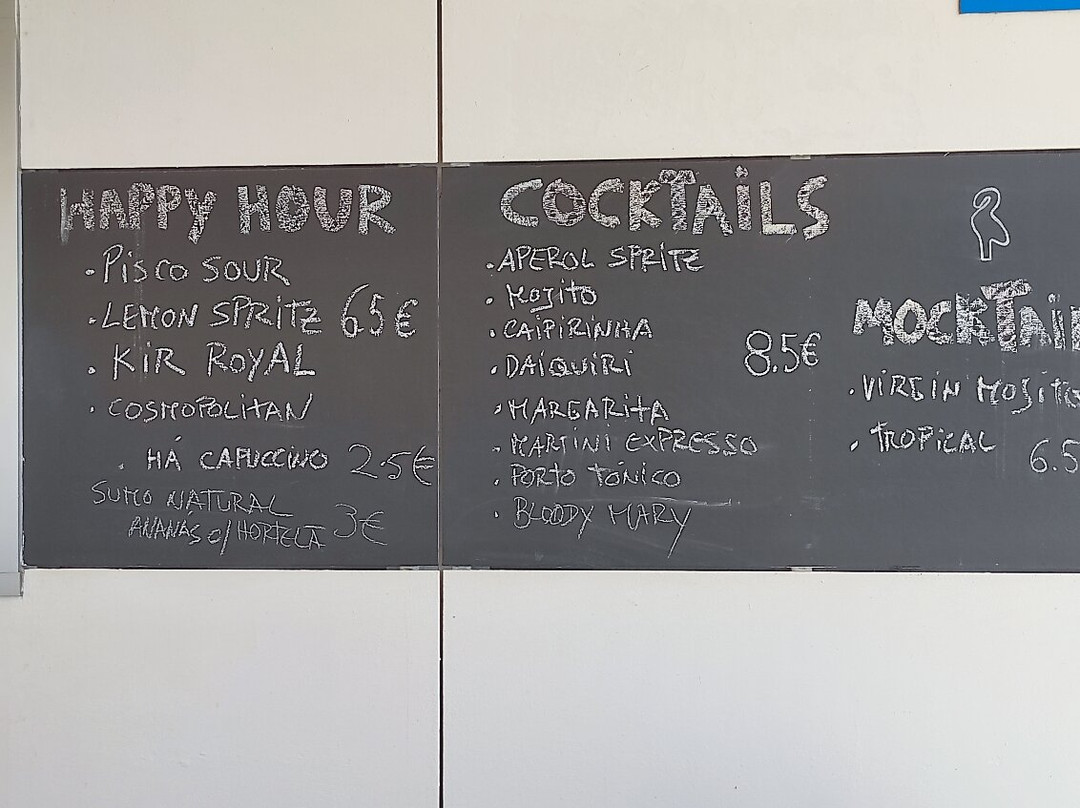 HAPPY HOUR
• PISCO SOUR
• LEMON SPRITZ 6.5€
• KIR ROYAL
• COSMOPOLITAN
• HÁ CAPUCCINO 2.5€
SUMO NATURAL
ANANÁS c/ HORTELÃ 3€
COCKTAILS
• APEROL SPRITZ
• MOJITO
• CAIPIRINHA
• DAIQUIRI 8.5€
• MARGARITA
• MARTINI EXPRESSO
• PORTO TÓNICO
• BLOODY MARY
MOCKTAIL
• VIRGIN MOJITO
• TROPICAL 6.5